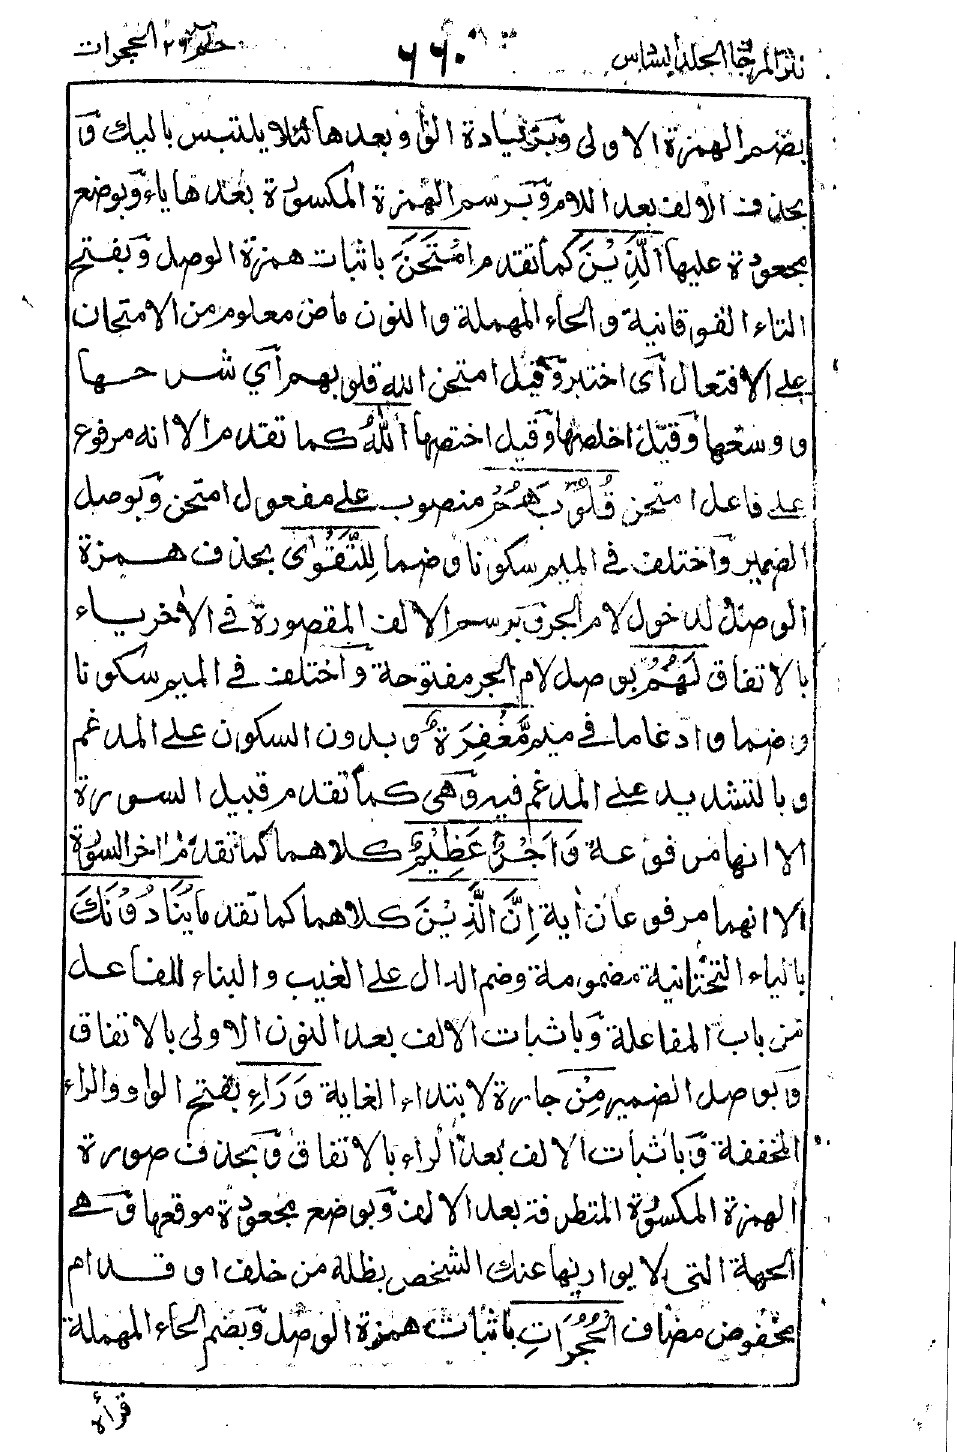 نثر المرجان الجلد السادس ٦٦٠ حٰم ٢٦ الحجرات
بضم الهمزة الاولى وَبزيادة الواو بعدها لئلا يلتبس باليك وَ
بحذف الالف بعد اللام وَبرسم الهمزة المكسورة بعدها ياء وَبوضع
مجعودة عليها الَّذِيْنَ كما تقدم امْتَحَنَ باثبات همزة الوصل وَبفتح
التاء الفوقانية والحاء المهملة والنون ماض معلوم من الامتحان
على الافتعال أى اختبر وَقيل امتحن الله قلوبهم أي شرحها
ووسعها وَقيل اخلصها وَقيل اختصها اللّٰهُ كما تقدم الا انه مرفوع
على فاعل امتحن قُلُوْبَهُمْ منصوب على مفعول امتحن وَبوصل
الضمير وَاختلف فى الميم سكونا وضما لِلتَّقْوٰى بحذف همزة
الوصل لدخول لام الجر وَبرسم الالف المقصورة فى الاٰخر ياء
بالاتفاق لَهُمْ بوصل لام الجر مفتوحة وَاختلف فى الميم سكونا
وضما وادغاما فى ميم مَّغْفِرَةٌ وبدون السكون على المدغم
وبالتشديد على المدغم فيه وَهى كما تقدم قبيل السورة
الا انها مرفوعة وَاَجْرٌ عَظِيْمٌ كلاهما كما تقدم اٰخر السورة
الا انهما مرفوعان اٰية اِنَّ الَّذِيْنَ كلاهما كما تقدما يُنَادُوْنَكَ
بالياء التحتانية مضمومة وضم الدال على الغيب والبناء للفاعل
من باب المفاعلة وَباثبات الالف بعد النون الاولى بالاتفاق
وَبوصل الضمير مِنْ جارة لابتداء الغاية وَرَاءِ بفتح الواو والراء
المخففة وَباثبات الالف بعد الراء بالاتفاق وَبحذف صورة
الهمزة المكسورة المتطرفة بعد الالف وَبوضع مجعودة موقعها وَهى
الجهة التى لا يواريها عنك الشخص بظله من خلف او قدام
مخفوض مضاف الْحُجُرَاتِ باثبات همزة الوصل وَبضم الحاء المهملة
قرأه